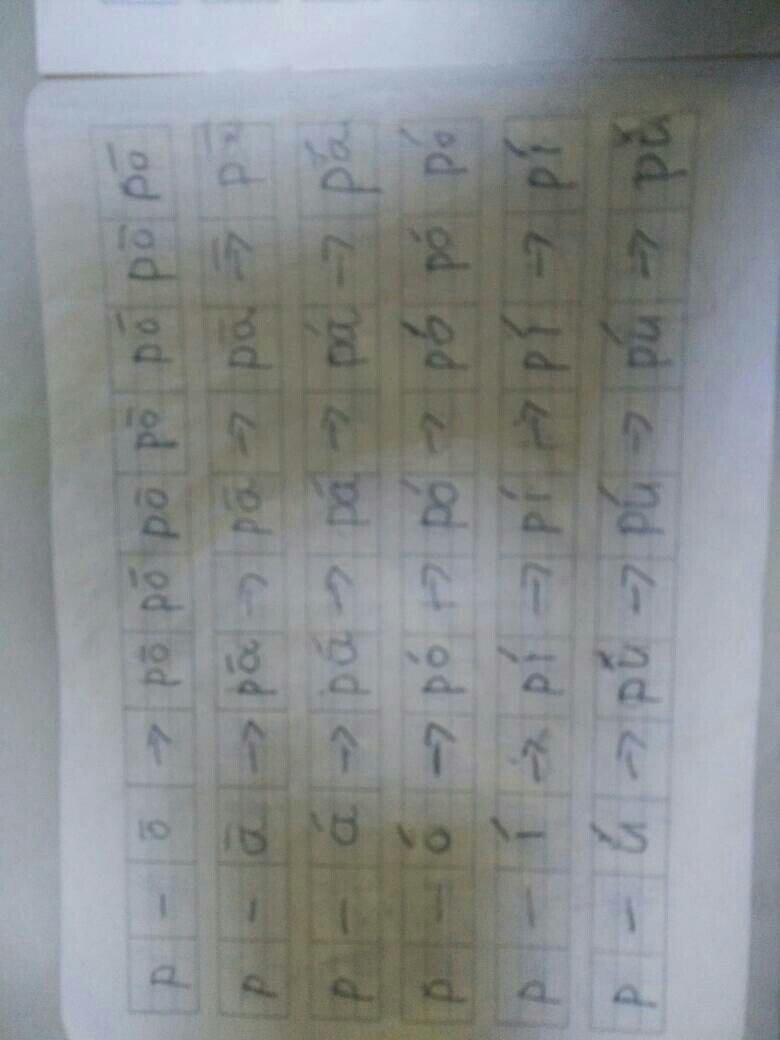 p - ō → pō pō pō pō pō pō pō
p - ā → pā → pā → pā → pā
p - á → pá → pá → pá → pǎ
p - ó → pó → pó → pó pó pó
p - í → pí → pí → pí → pí
p - ú → pǔ → pú → pú → pǔ